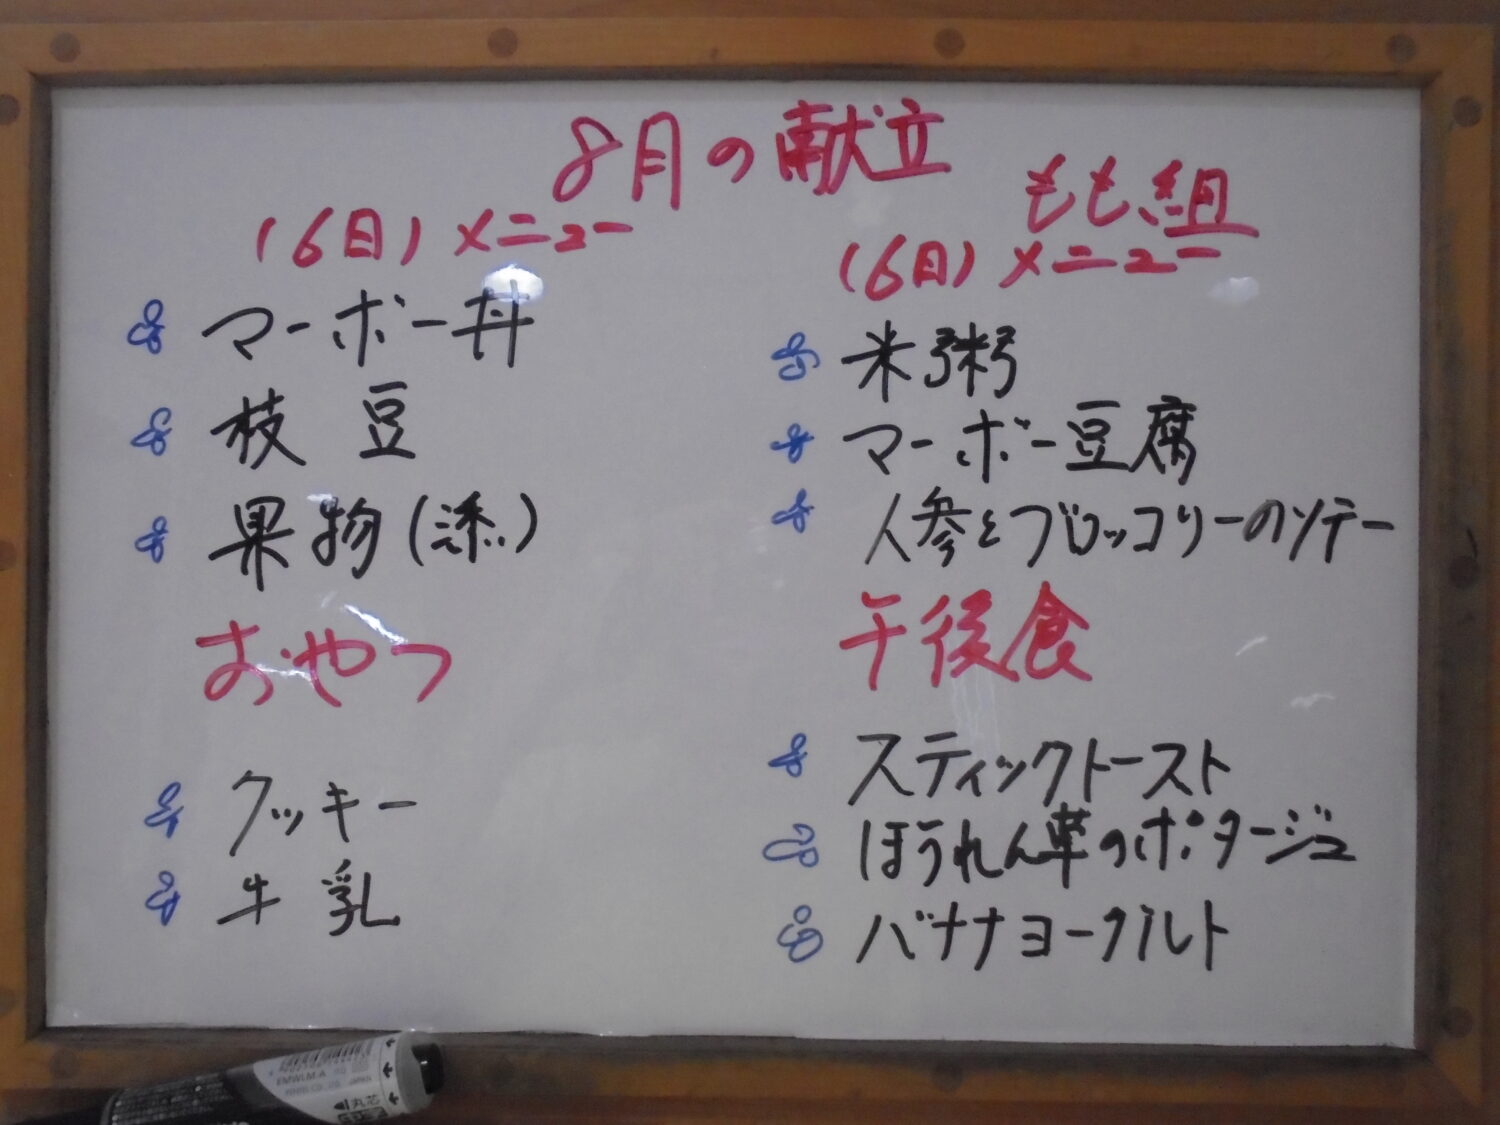 8月の献立
(6日)メニュー
マーボー丼
枝豆
果物(添)
おやつ
クッキー
牛乳
もも組
(6日)メニュー
米粥
マーボー豆腐
人参とブロッコリーのソテー
午後食
スティックトースト
ほうれん草のポタージュ
バナナヨーグルト
EMWLM-A
JAPAN
丸芯